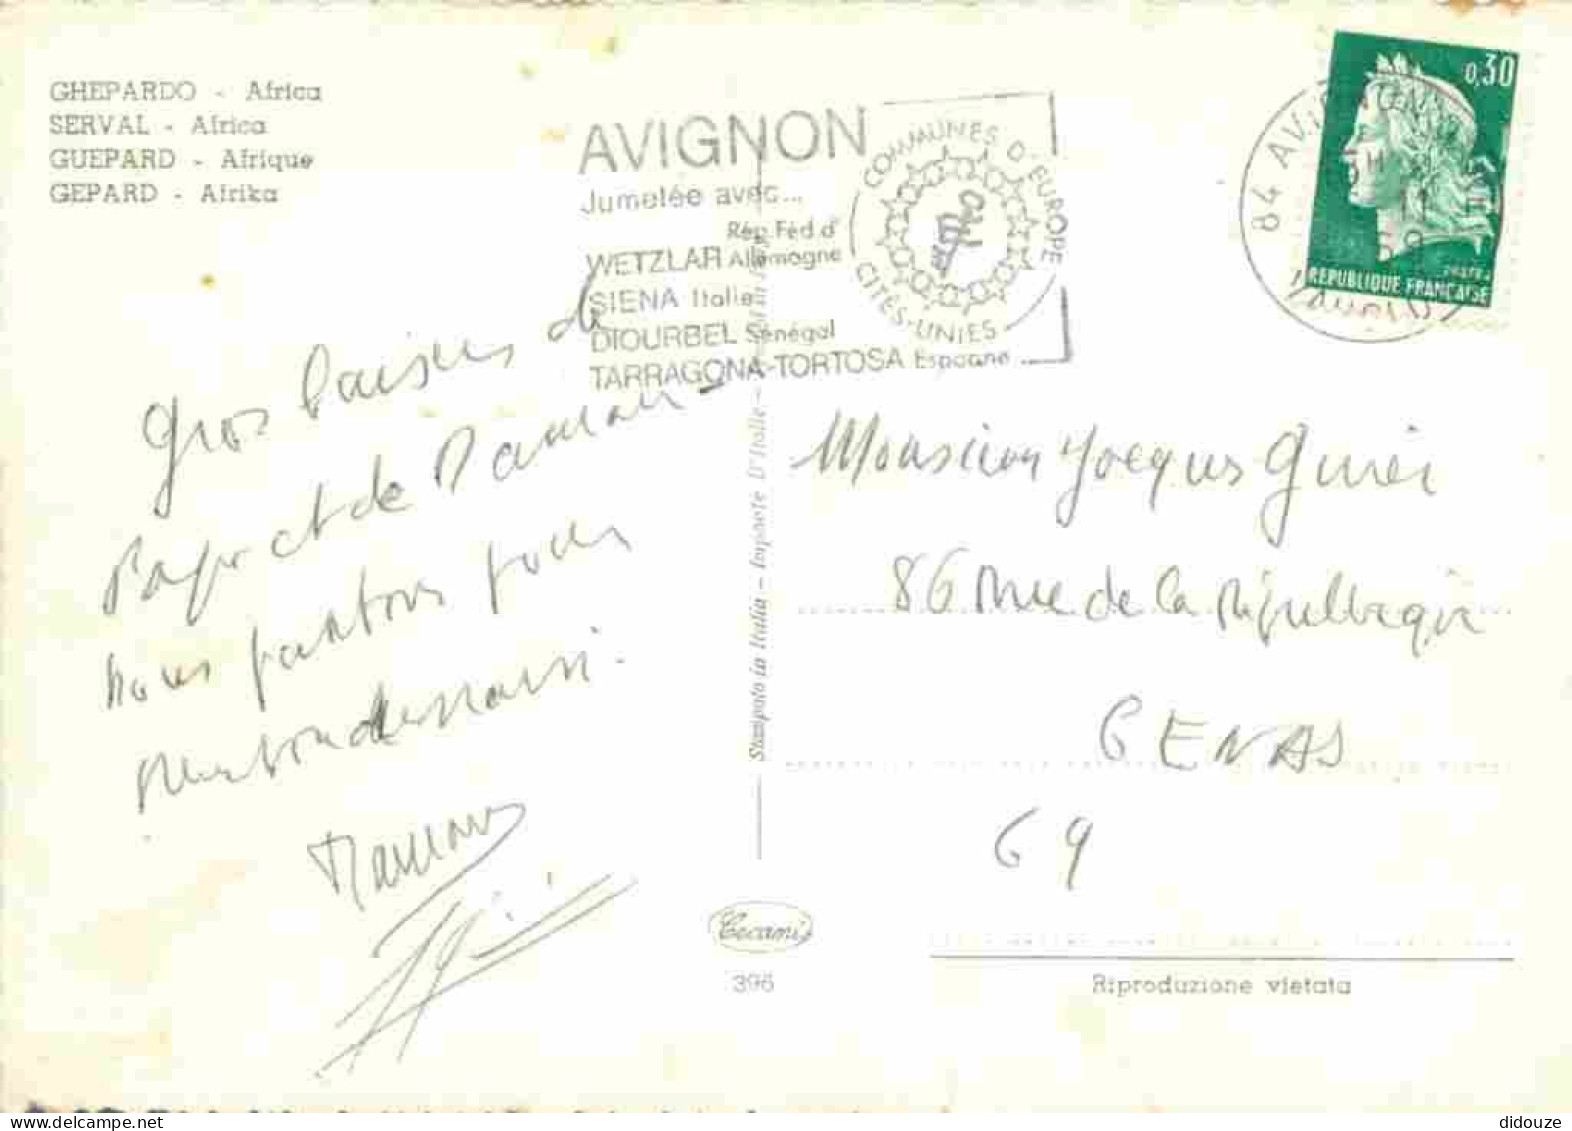 GHEPARDO - Africa
SERVAL - Africa
GUEPARD - Afrique
GEPARD - Afrika
AVIGNON
Jumelée avec...
Rép. Féd. d'
WETZLAR Allemagne
SIENA Italie
DIOURBEL Sénégal
TARRAGONA-TORTOSA Espagne
COMMUNES D'EUROPE
CITÉS-UNIES
84 AVIGNON
69
0,30
POSTES
REPUBLIQUE FRANCAISE
Gros baisers de
Papi et de Maman
nous partons pour
Maman
Stampato in Italia - Imprimé D'Italie
Monsieur Jacques
86 Rue de la République
GENAS
69
Cecami
396
Riproduzione vietata
didouze